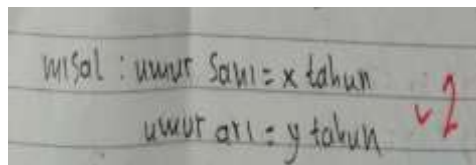 misal : umur Sani = x tahun
umur ari = y tahun
✓2